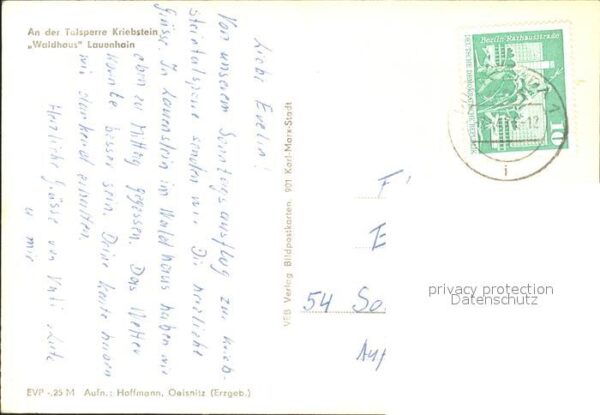 An der Talsperre Kriebstein
„Waldhaus" Lauenhain
Liebe Evelin!
Von unserem Sonntagsausflug zur Krieb-
steintalsperre senden wir Dir herzliche
Grüsse. In Lauenstein im Waldhaus haben wir
eben zu Mittag gegessen. Das Wetter
könnte besser sein. Deine Karte haben
wir dankend erhalten.
Herzliche Grüsse von
u mir
EVP -.25 M Aufn.: Hoffmann, Oelsnitz (Erzgeb.)
VEB Verlag Bildpostkarten, 901 Karl-Marx-Stadt
Berlin, Rathausstraße
DEUTSCHE DEMOKRATISCHE REPUBLIK
10
-12
i
F
E
54 So
privacy protection
Datenschutz